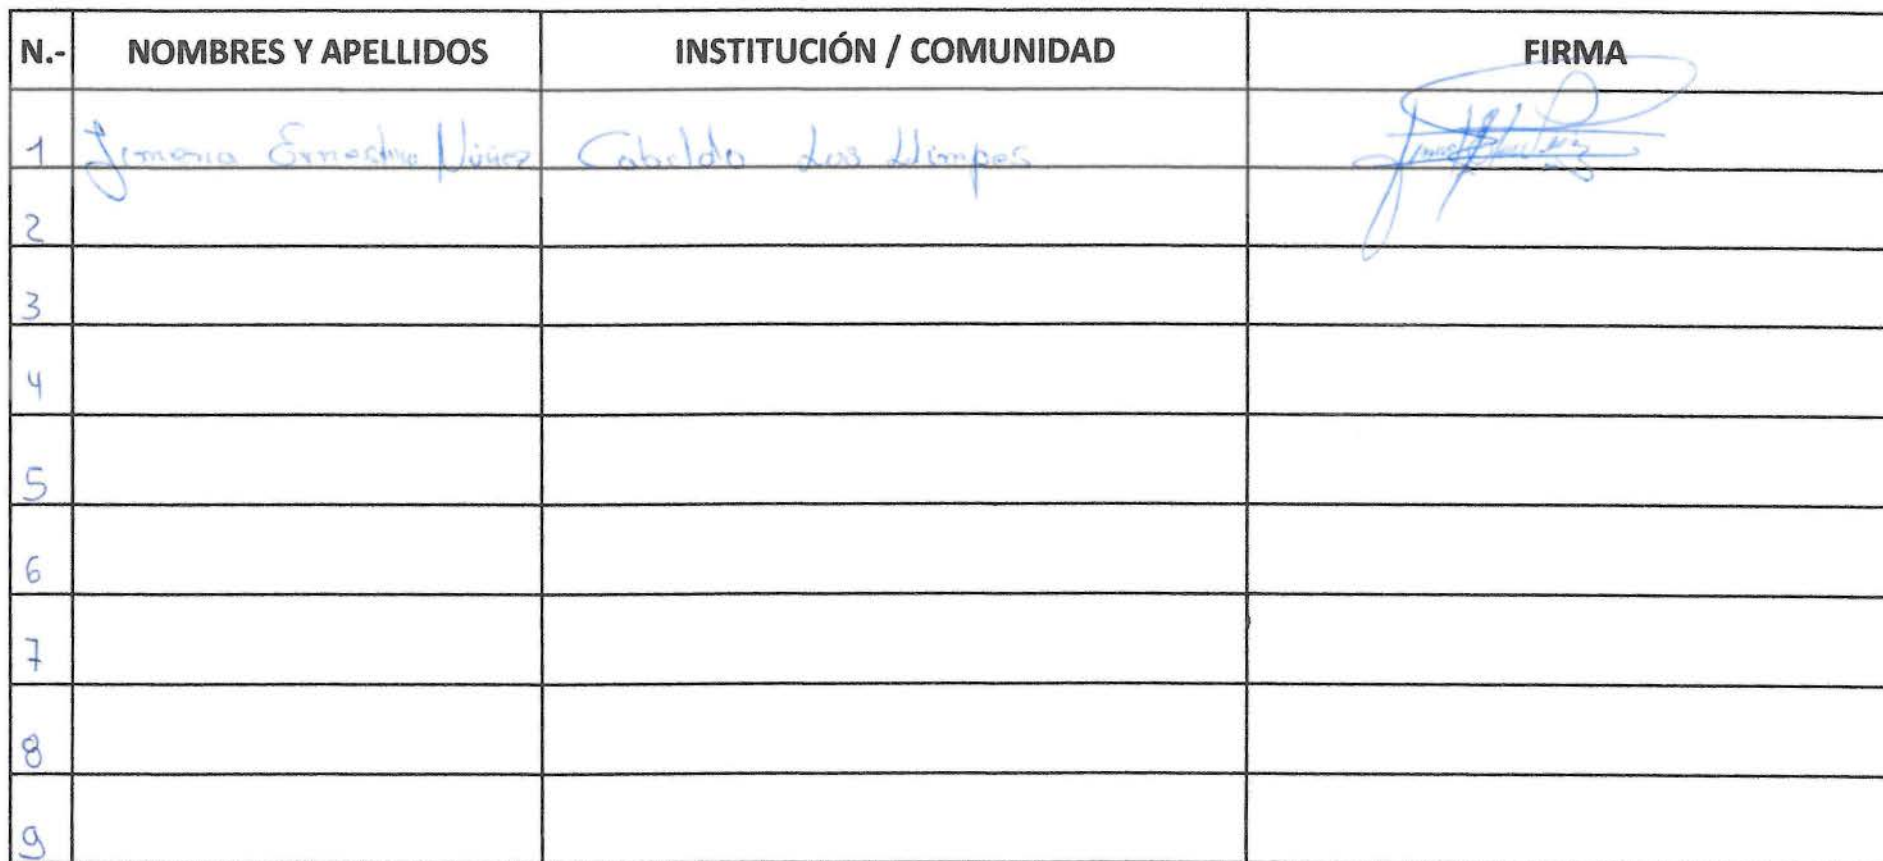 N.- NOMBRES Y APELLIDOS INSTITUCIÓN / COMUNIDAD FIRMA
1 Jimena Ernestina Núñez Cabildo Los Llimpes
2
3
4
5
6
7
8
9